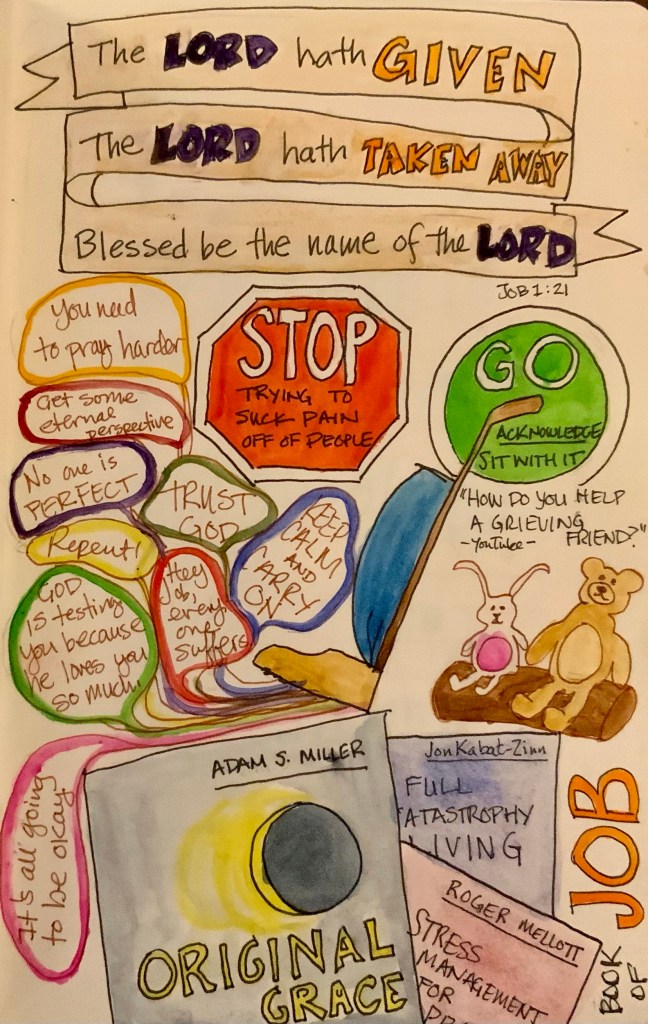 The LORD hath GIVEN
The LORD hath TAKEN AWAY
Blessed be the name of the LORD
JOB 1:21
You need
to pray harder
Get some
eternal
perspective
No one is
PERFECT
Repent!
GOD
is testing
you because
he loves you
so much.
TRUST
GOD
Hey
Job,
every
one
suffers
KEEP
CALM
AND
CARRY
ON
It's all going
to be okay
STOP
TRYING TO
SUCK PAIN
OFF OF PEOPLE
GO
ACKNOWLEDGE
SIT WITH IT
"HOW DO YOU HELP
A GRIEVING
FRIEND?"
-YouTube-
ADAM S. MILLER
ORIGINAL
GRACE
Jon Kabat-Zinn
FULL
CATASTROPHY
LIVING
ROGER MELLOTT
STRESS
MANAGEMENT
FOR
BOOK OF
JOB